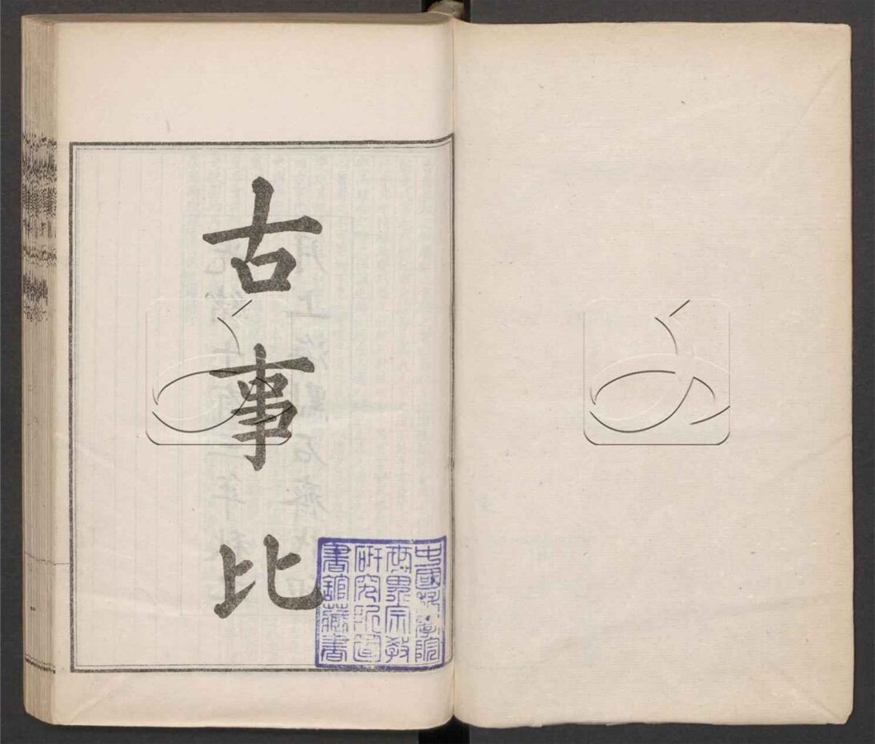 古事比
中國科學院
世界宗教
研究所圖
書舘藏書